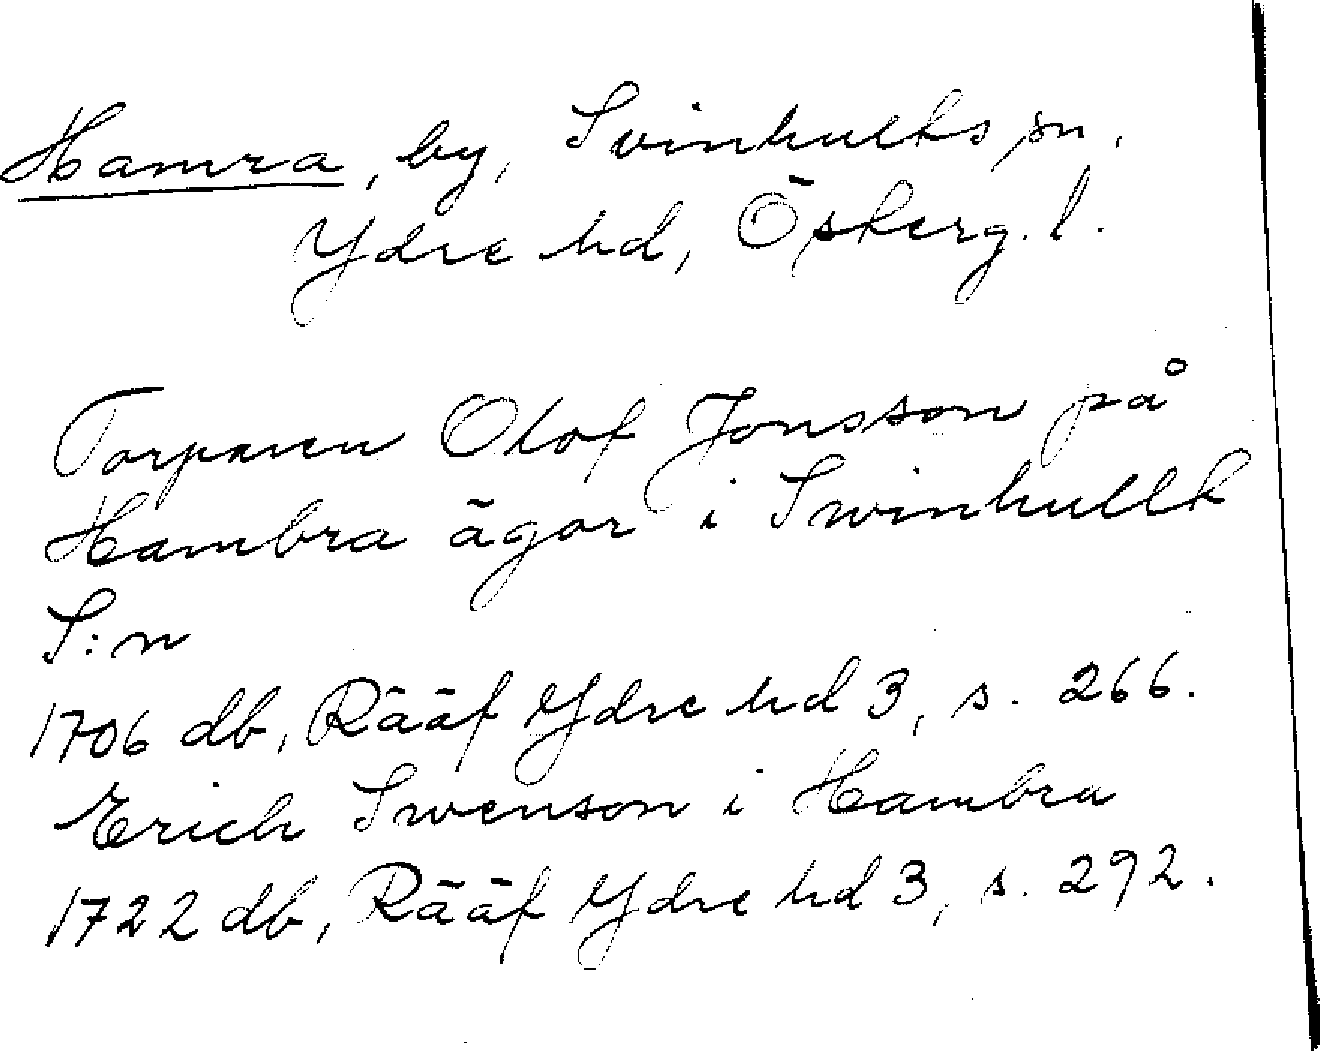 Hamra, by, Svinhults sn,
Ydre hd, Österg. l.
Torparen Olof Jonsson på
Hambra ägor i Swinhullt
S:n
1706 db, Rääf Ydre hd 3, s. 266.
Erich Swenson i Hambra
1722 db, Rääf Ydre hd 3, s. 292.